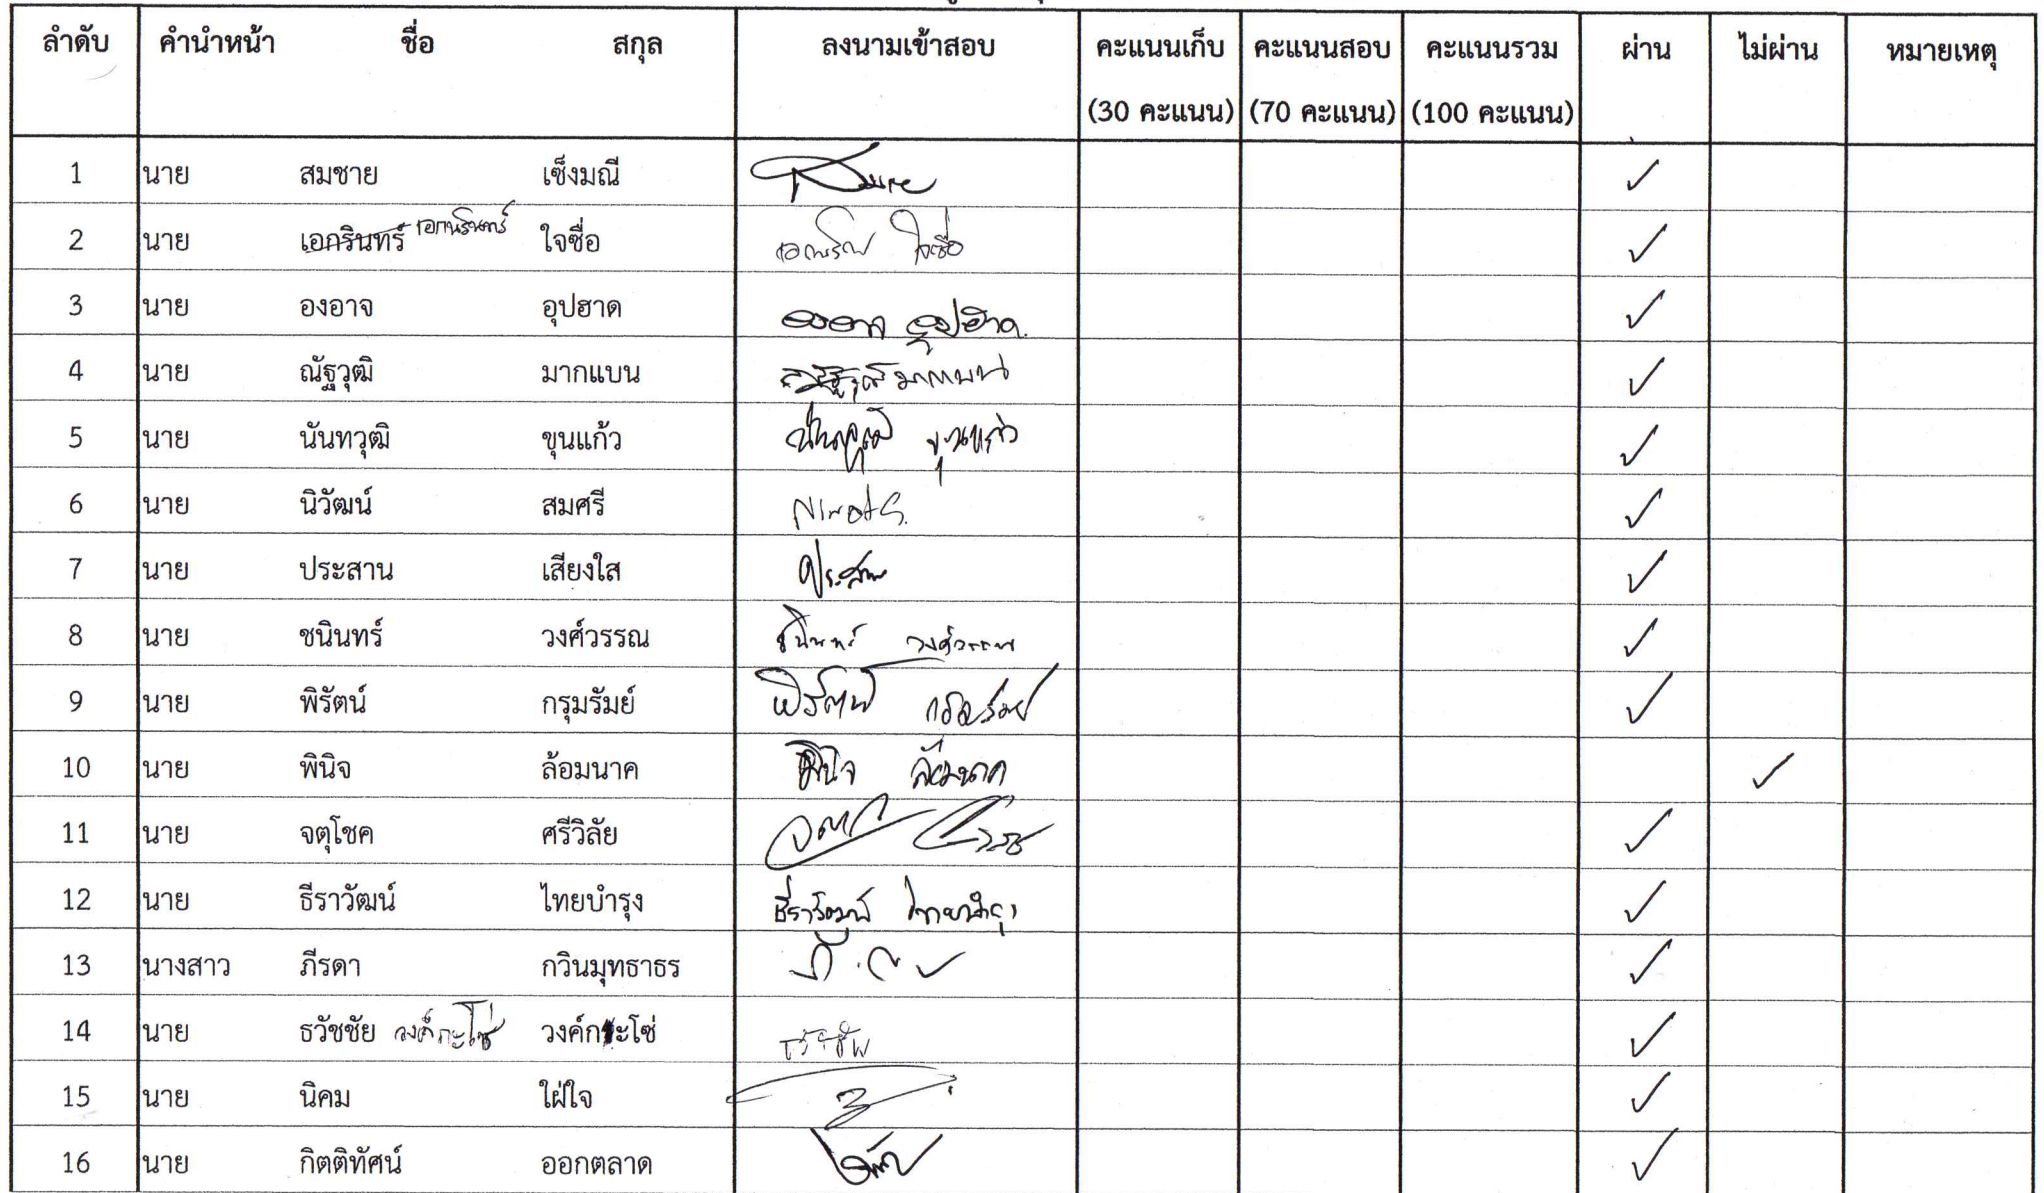 ลำดับ คำนำหน้า ชื่อ สกุล ลงนามเข้าสอบ คะแนนเก็บ คะแนนสอบ คะแนนรวม ผ่าน ไม่ผ่าน หมายเหตุ
(30 คะแนน) (70 คะแนน) (100 คะแนน)
1 นาย สมชาย เซ็งมณี ✓
2 นาย เอกรินทร์ เอกนรินทร์ ใจซื่อ ใจซื่อ ✓
3 นาย องอาจ อุปฮาด องอาจ อุปฮาด ✓
4 นาย ณัฐวุฒิ มากแบน ณัฐวุฒิ มากแบน ✓
5 นาย นันทวุฒิ ขุนแก้ว นันทวุฒิ ขุนแก้ว ✓
6 นาย นิวัฒน์ สมศรี Niwat S. ✓
7 นาย ประสาน เสียงใส ประสาน ✓
8 นาย ชนินทร์ วงศ์วรรณ ชนินทร์ วงศ์วรรณ ✓
9 นาย พิรัตน์ กรุมรัมย์ พิรัตน์ กรุมรัมย์ ✓
10 นาย พินิจ ล้อมนาค พินิจ ล้อมนาค ✓
11 นาย จตุโชค ศรีวิลัย ✓
12 นาย ธีราวัฒน์ ไทยบำรุง ธีราวัฒน์ ไทยบำรุง ✓
13 นางสาว ภีรดา กวินมุทธาธร ✓
14 นาย ธวัชชัย วงค์กะโซ่ วงค์กะโซ่ ธวัชชัย ✓
15 นาย นิคม ใฝ่ใจ ✓
16 นาย กิตติทัศน์ ออกตลาด ✓